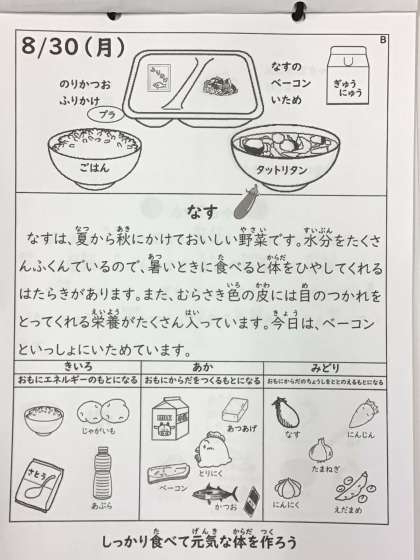 B
8/30(月)
のりかつお
ふりかけ
プラ
なすの
ベーコン
いため
ぎゅう
にゅう
ごはん
タットリタン
なす
なすは、夏から秋にかけておいしい野菜です。水分をたくさ
んふくんでいるので、暑いときに食べると体をひやしてくれる
はたらきがあります。また、むらさき色の皮には目のつかれを
とってくれる栄養がたくさん入っています。今日は、ベーコン
といっしょにいためています。
きいろ
おもにエネルギーのもとになる
じゃがいも
さとう
あぶら
あか
おもにからだをつくるもとになる
あつあげ
とりにく
ベーコン
かつお
みどり
おもにからだのちょうしをととのえるもとになる
なす
にんじん
たまねぎ
にんにく
えだまめ
しっかり食べて元気な体を作ろう